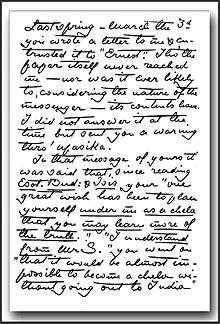 Last spring – March the 3d
you wrote a letter to me & en-
trusted it to "Ernest". Tho the
paper itself never reached
me — nor was it ever likely
to, considering the nature of the
messenger — its contents have.
I did not answer it at the
time but sent you a warning
thro' Upasika.
In that message of yours it
was said that, since reading
Esot. Bud: & Isis your "one
great wish has been to place
yourself under me as a chela
that you may learn more of
the truth." "I understand
from Mr S." you went on
"that it would be almost im-
possible to become a chela with
out going out to India"